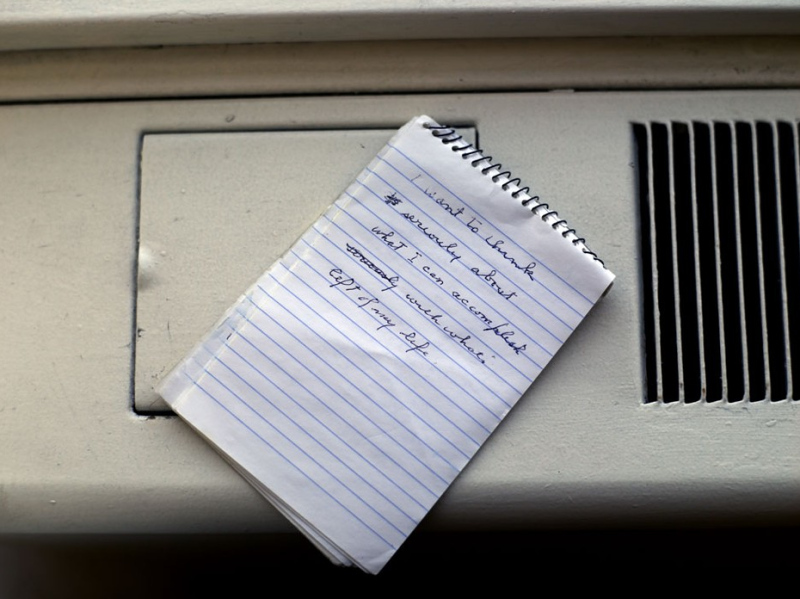 I want to think
seriously about
what I can accomplish
seriously with what's
left of my life.